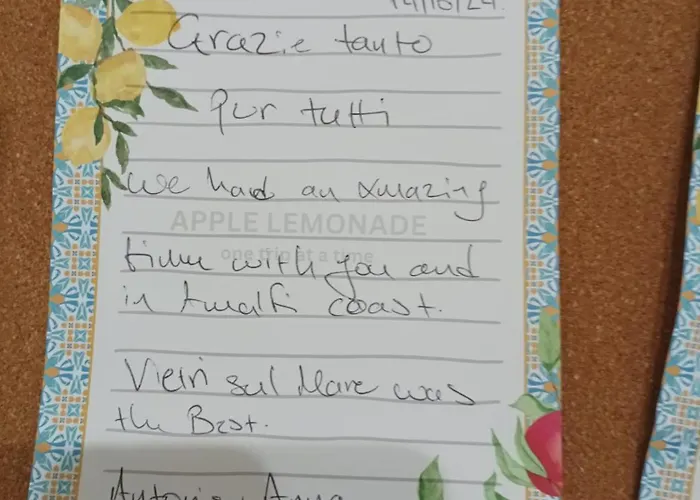 14/10/24.
Grazie tanto
per tutti
we had an amazing
APPLE LEMONADE
time with you and
one trip at a time
in Amalfi coast.
Vietri sul Mare was
the Best.
Antonio, Anna